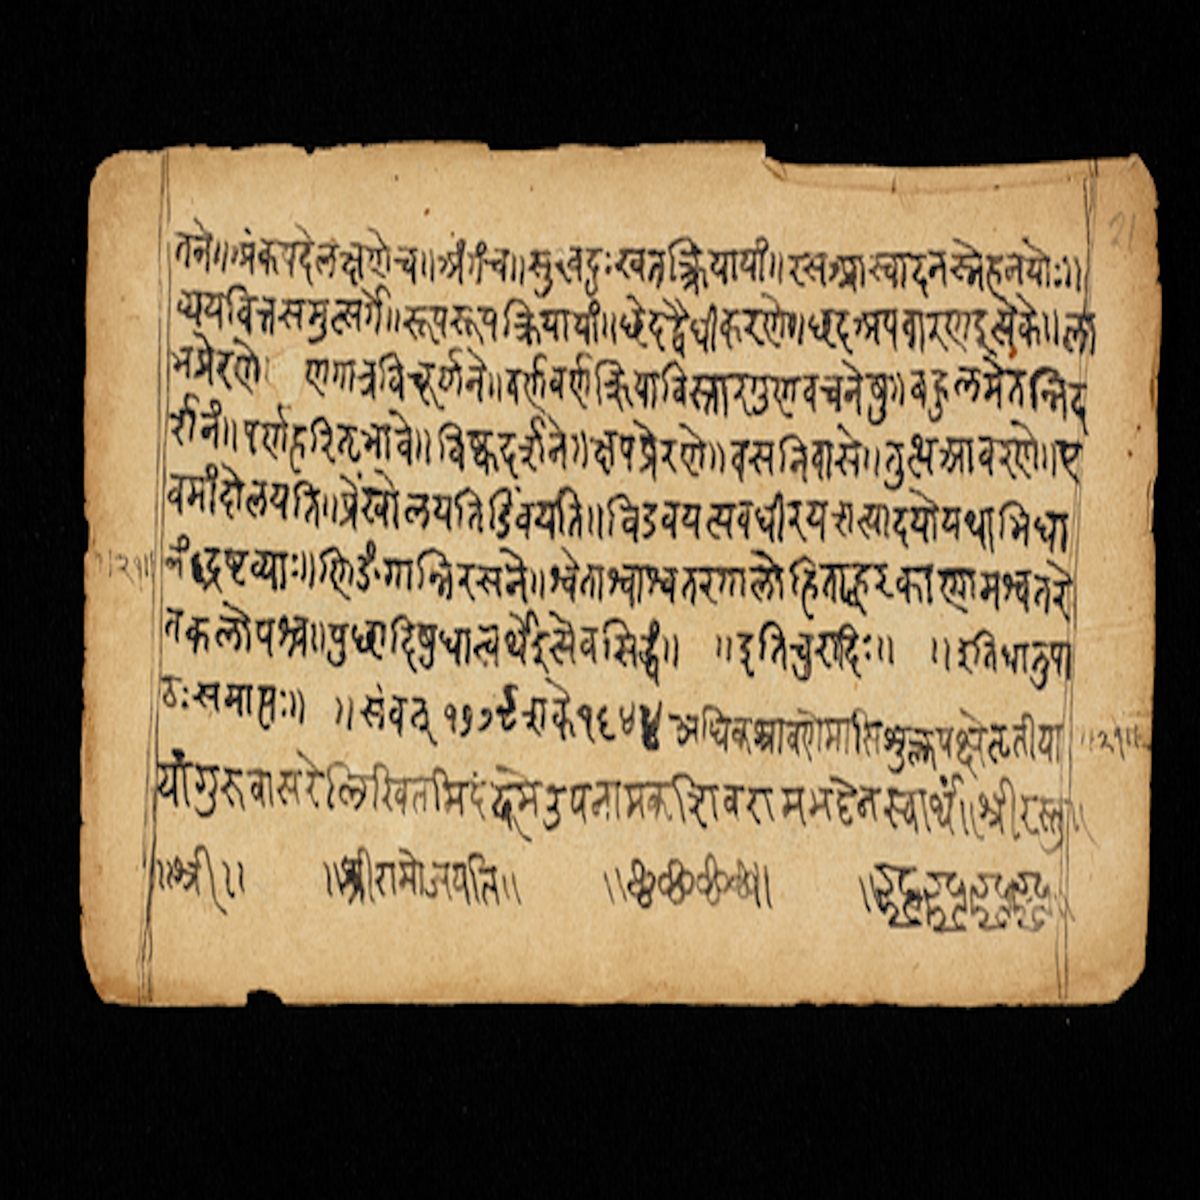 तने॥अंकपदेलक्षणेच॥अंगंच॥सुखदुःखतत्क्रियायां॥रसआस्वादनस्नेहनयोः॥
व्ययवित्तसमुत्सर्गे॥रूपरूपक्रियायां॥छेदद्वैधीकरणे॥छदअपवारणइत्येके॥ला
भप्रेरणे॥ व्रणगात्रविचूर्णने॥वर्णवर्णक्रियाविस्तारगुणवचनेषु॥बहुलमेतन्निद
र्शनं॥पर्णहरितभावे॥विष्कदर्शने॥क्षपप्रेरणे॥वसनिवासे॥तुत्थआवरणे॥ए
वमांदोलयति॥प्रेंखोलयतिडिंवयति॥विडवयत्यवधीरयत्यादयोयथाभिधा
नंद्रष्टव्याः॥णिङंगान्निरसने॥श्वेताश्वाश्वतरगालोहिताह्वरकाणामश्वतरे
तकलोपश्च॥पुच्छादिषुधात्वर्थेइत्येवसिद्धं॥ ॥इतिचुरादिः॥ ॥इतिधातुपा
ठः समाप्तः॥ ॥संवत् १७७९शाके१६४४ अधिकश्रावणेमासिशुक्लपक्षेतृतीया
यांगुरुवासरेलिखितमिदं उपनामकशिवरामभट्टेनस्वार्थं॥श्रीरस्तु॥
॥श्री॥ ॥श्रीरामोजयति॥
॥२१॥
॥२१॥
21